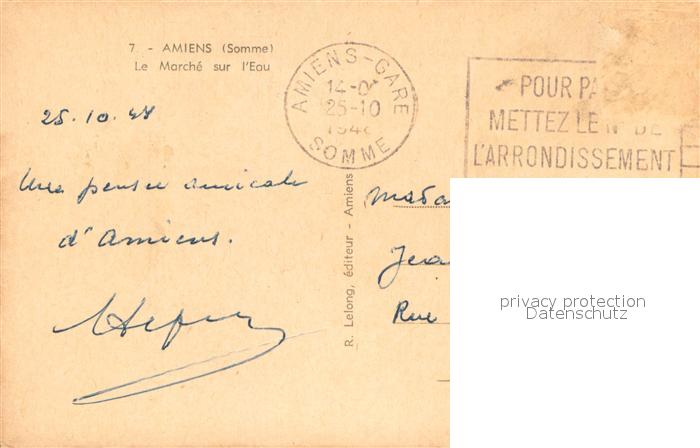 7. - AMIENS (Somme)
Le Marché sur l'Eau
AMIENS-GARE
14-0
25-10
194
SOMME
POUR PA
METTEZ LE N° DE
L'ARRONDISSEMENT
25.10.48
Une pensée amicale
d'Amiens.
R. Lelong, éditeur - Amiens
Mada
Jea
Rue
privacy protection
Datenschutz